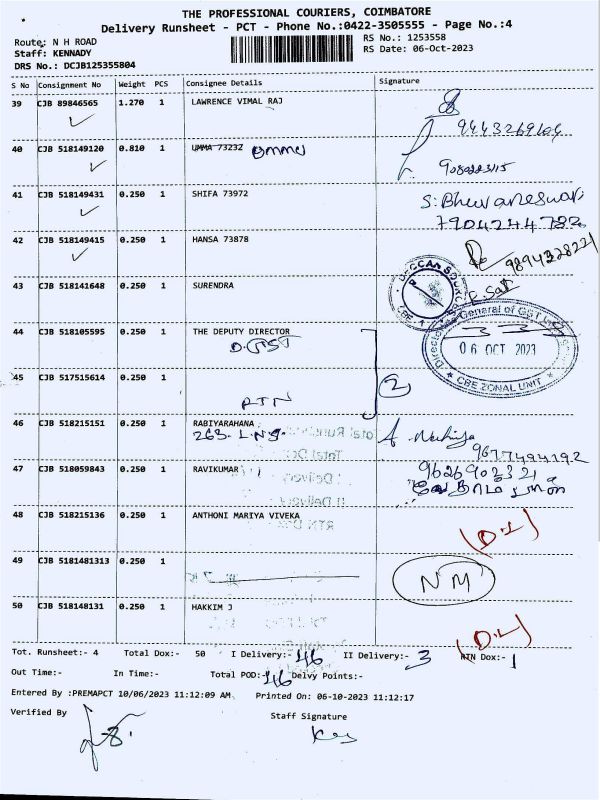 THE PROFESSIONAL COURIERS, COIMBATORE
Delivery Runsheet - PCT - Phone No.:0422-3505555 - Page No.:4
Route: N H ROAD
RS No.: 1253558
Staff: KENNADY
RS Date: 06-Oct-2023
DRS No.: DCJB125355804
S No Consignment No Weight PCS Consignee Details Signature
39 CJB 89846565 1.270 1 LAWRENCE VIMAL RAJ
40 CJB 518149120 0.810 1 UMMA 73232
41 CJB 518149431 0.250 1 SHIFA 73972 S. Bhuvaneswari
7904244782
42 CJB 518149415 0.250 1 HANSA 73878
9894328221
43 CJB 518141648 0.250 1 SURENDRA
44 CJB 518105595 0.250 1 THE DEPUTY DIRECTOR
General of GST
06 OCT 2023
CBE ZONAL UNIT
45 CJB 517515614 0.250 1
RTN
2
46 CJB 518215151 0.250 1 RABIYARAHANA
263. L.N.S.
9677494192
47 CJB 518059843 0.250 1 RAVIKUMAR 9626902321
48 CJB 518215136 0.250 1 ANTHONI MARIYA VIVEKA
(D.L)
49 CJB 5181481313 0.250 1
NM
50 CJB 518148131 0.250 1 HAKKIM J
(D.L)
Tot. Runsheet:- 4 Total Dox:- 50 I Delivery:- 46 II Delivery:- 3 RTN Dox:- 1
Out Time:- In Time:- Total POD:- 46 Delvy Points:-
Entered By :PREMAPCT 10/06/2023 11:12:09 AM Printed On: 06-10-2023 11:12:17
Verified By
Staff Signature